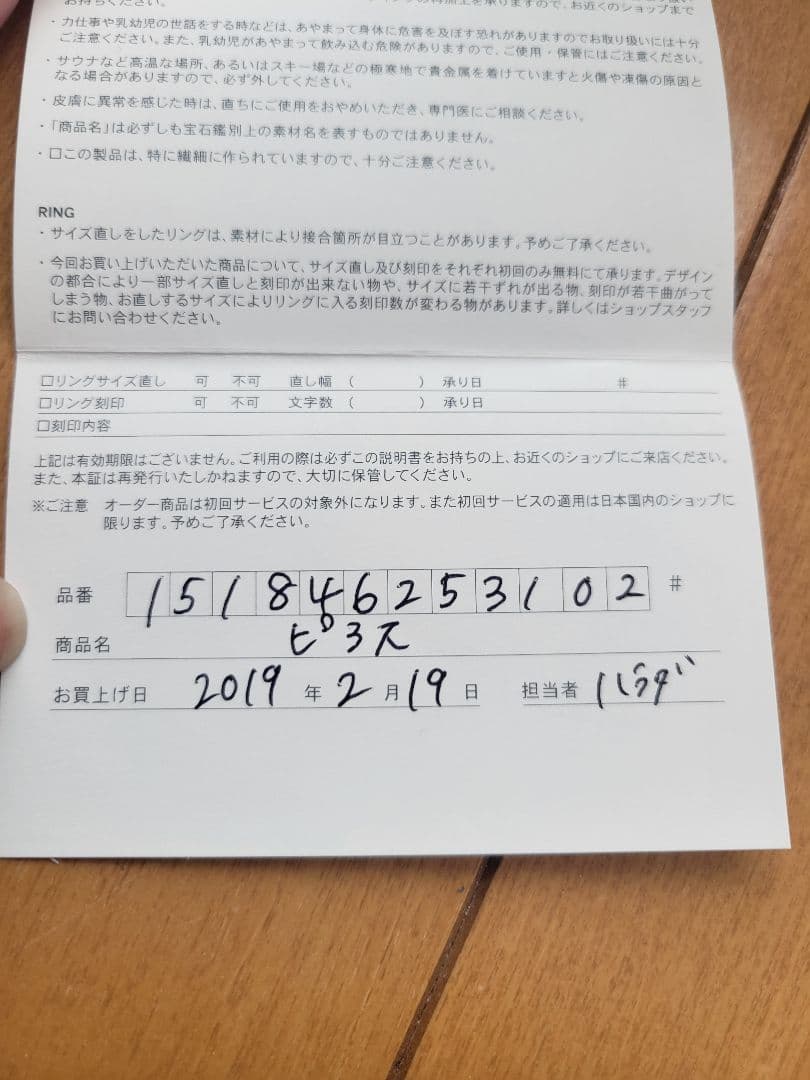 お持ちください。
承りますので、お近くのショップまで
・力仕事や乳幼児の世話をする時などは、あやまって身体に危害を及ぼす恐れがありますのでお取り扱いには十分
ご注意ください。また、乳幼児があやまって飲み込む危険がありますので、ご使用・保管にはご注意ください。
・サウナなど高温な場所、あるいはスキー場などの極寒地で貴金属を着けていますと火傷や凍傷の原因と
なる場合がありますので、必ず外してください。
・皮膚に異常を感じた時は、直ちにご使用をおやめいただき、専門医にご相談ください。
・「商品名」は必ずしも宝石鑑別上の素材名を表すものではありません。
・□この製品は、特に繊細に作られていますので、十分ご注意ください。
RING
・サイズ直しをしたリングは、素材により接合箇所が目立つことがあります。予めご了承ください。
・今回お買い上げいただいた商品について、サイズ直し及び刻印をそれぞれ初回のみ無料にて承ります。デザイン
の都合により一部サイズ直しと刻印が出来ない物や、サイズに若干ずれが出る物、刻印が若干曲がって
しまう物、お直しするサイズによりリングに入る刻印数が変わる物があります。詳しくはショップスタッフ
にお問い合わせください。
□リングサイズ直し 可 不可 直し幅 ( ) 承り日 #
□リング刻印 可 不可 文字数 ( ) 承り日
□刻印内容
上記は有効期限はございません。ご利用の際は必ずこの説明書をお持ちの上、お近くのショップにご来店ください。
また、本証は再発行いたしかねますので、大切に保管してください。
※ご注意 オーダー商品は初回サービスの対象外になります。また初回サービスの適用は日本国内のショップに
限ります。予めご了承ください。
品番 151846253102 #
商品名 ピアス
お買上げ日 2019 年 2 月 19 日 担当者 ハラダ